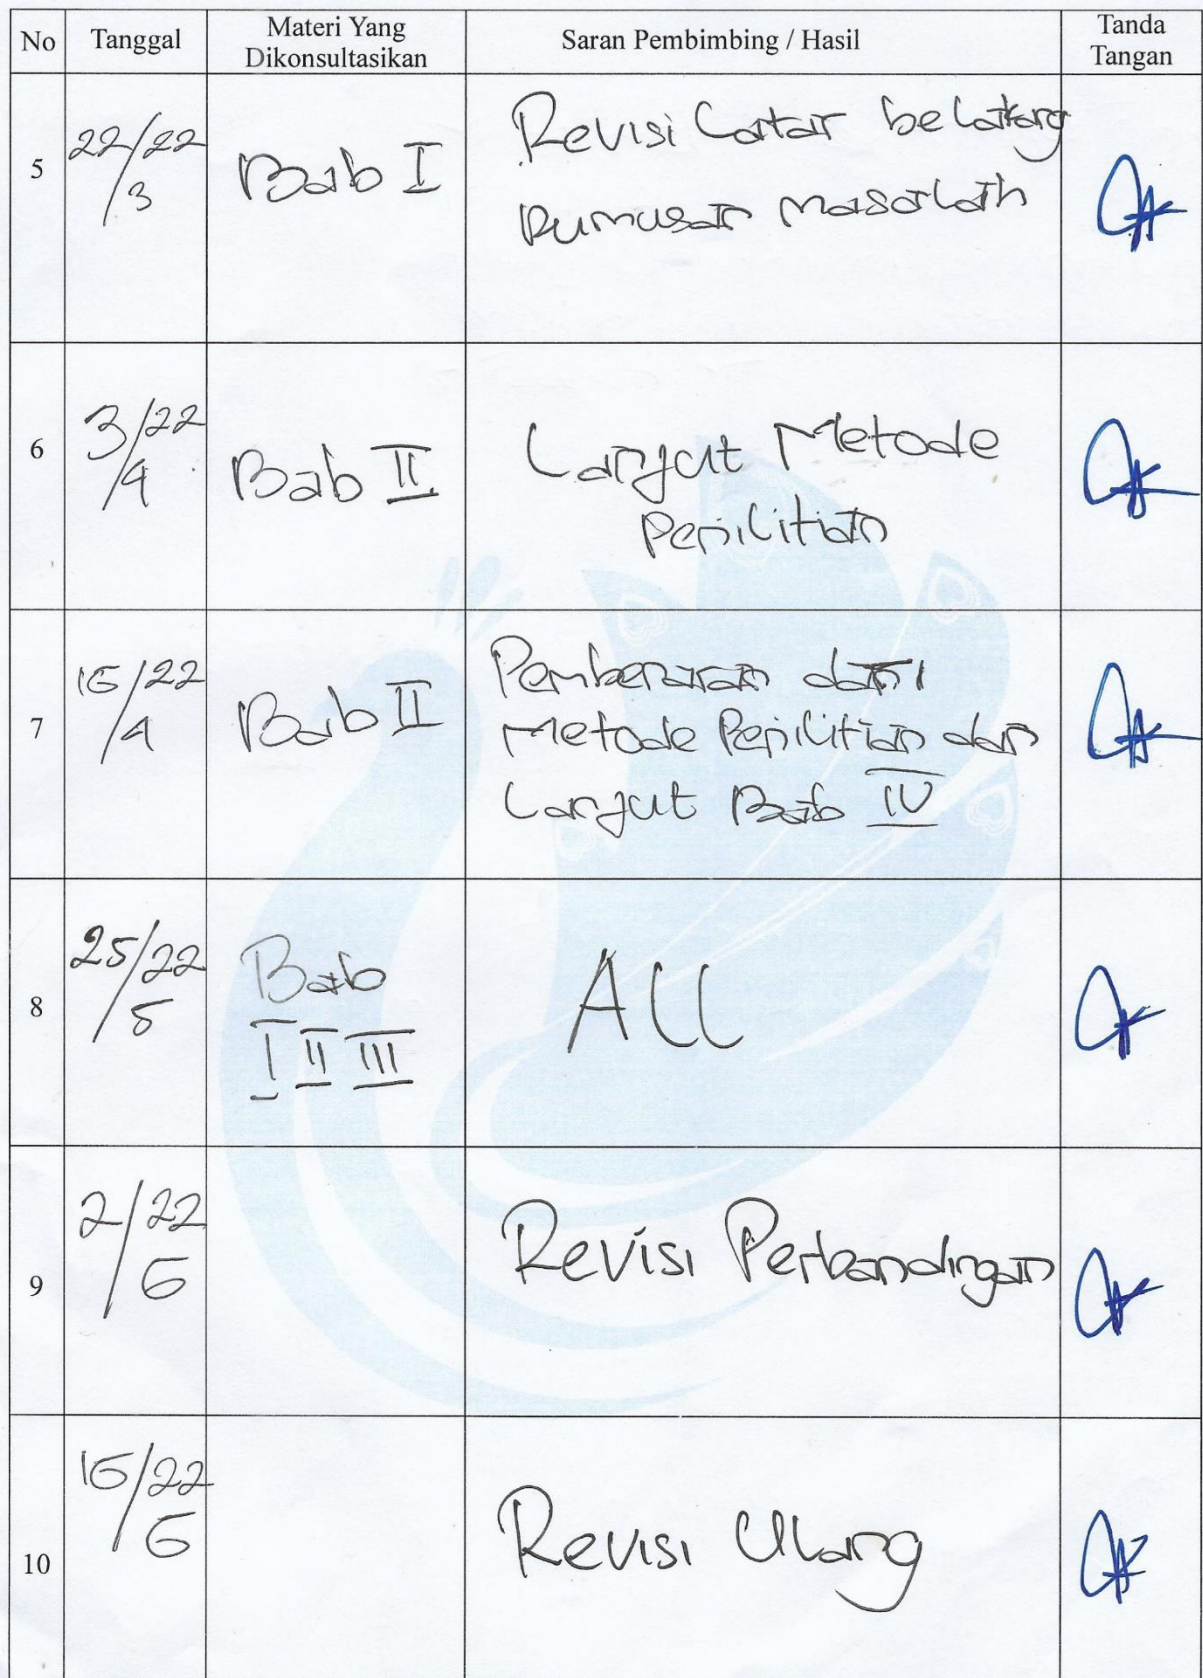 No Tanggal Materi Yang Dikonsultasikan Saran Pembimbing / Hasil Tanda Tangan
5 22/22/3 Bab I Revisi Latar belakang
Rumusan Masalah
6 3/22/4 Bab II Lanjut Metode
Penilitian
7 16/22/4 Bab II Pembenaran dari
Metode Penilitian dan
Lanjut Bab IV
8 25/22/5 Bab
I II III
ACC
9 2/22/6 Revisi Perbandingan
10 16/22/6 Revisi Ulang